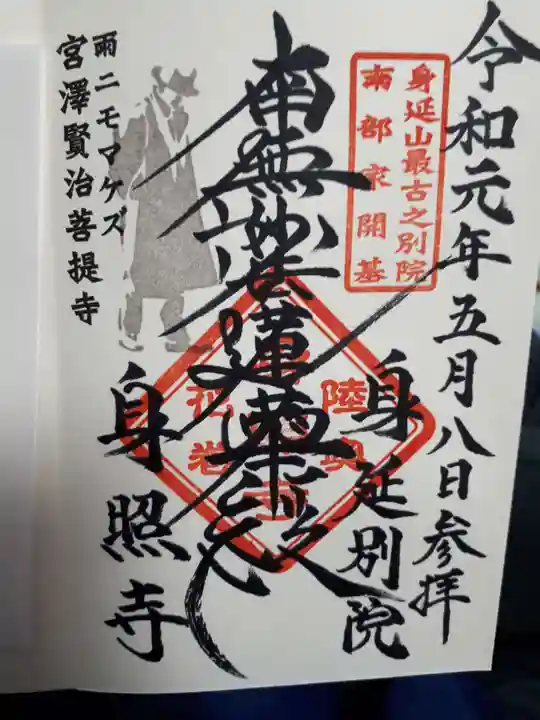 令和元年五月八日参拝
身延山最古之別院
南部家開基
身延別院
陸奥
南無妙法蓮華経
花巻
身照寺
雨ニモマケズ
宮澤賢治菩提寺